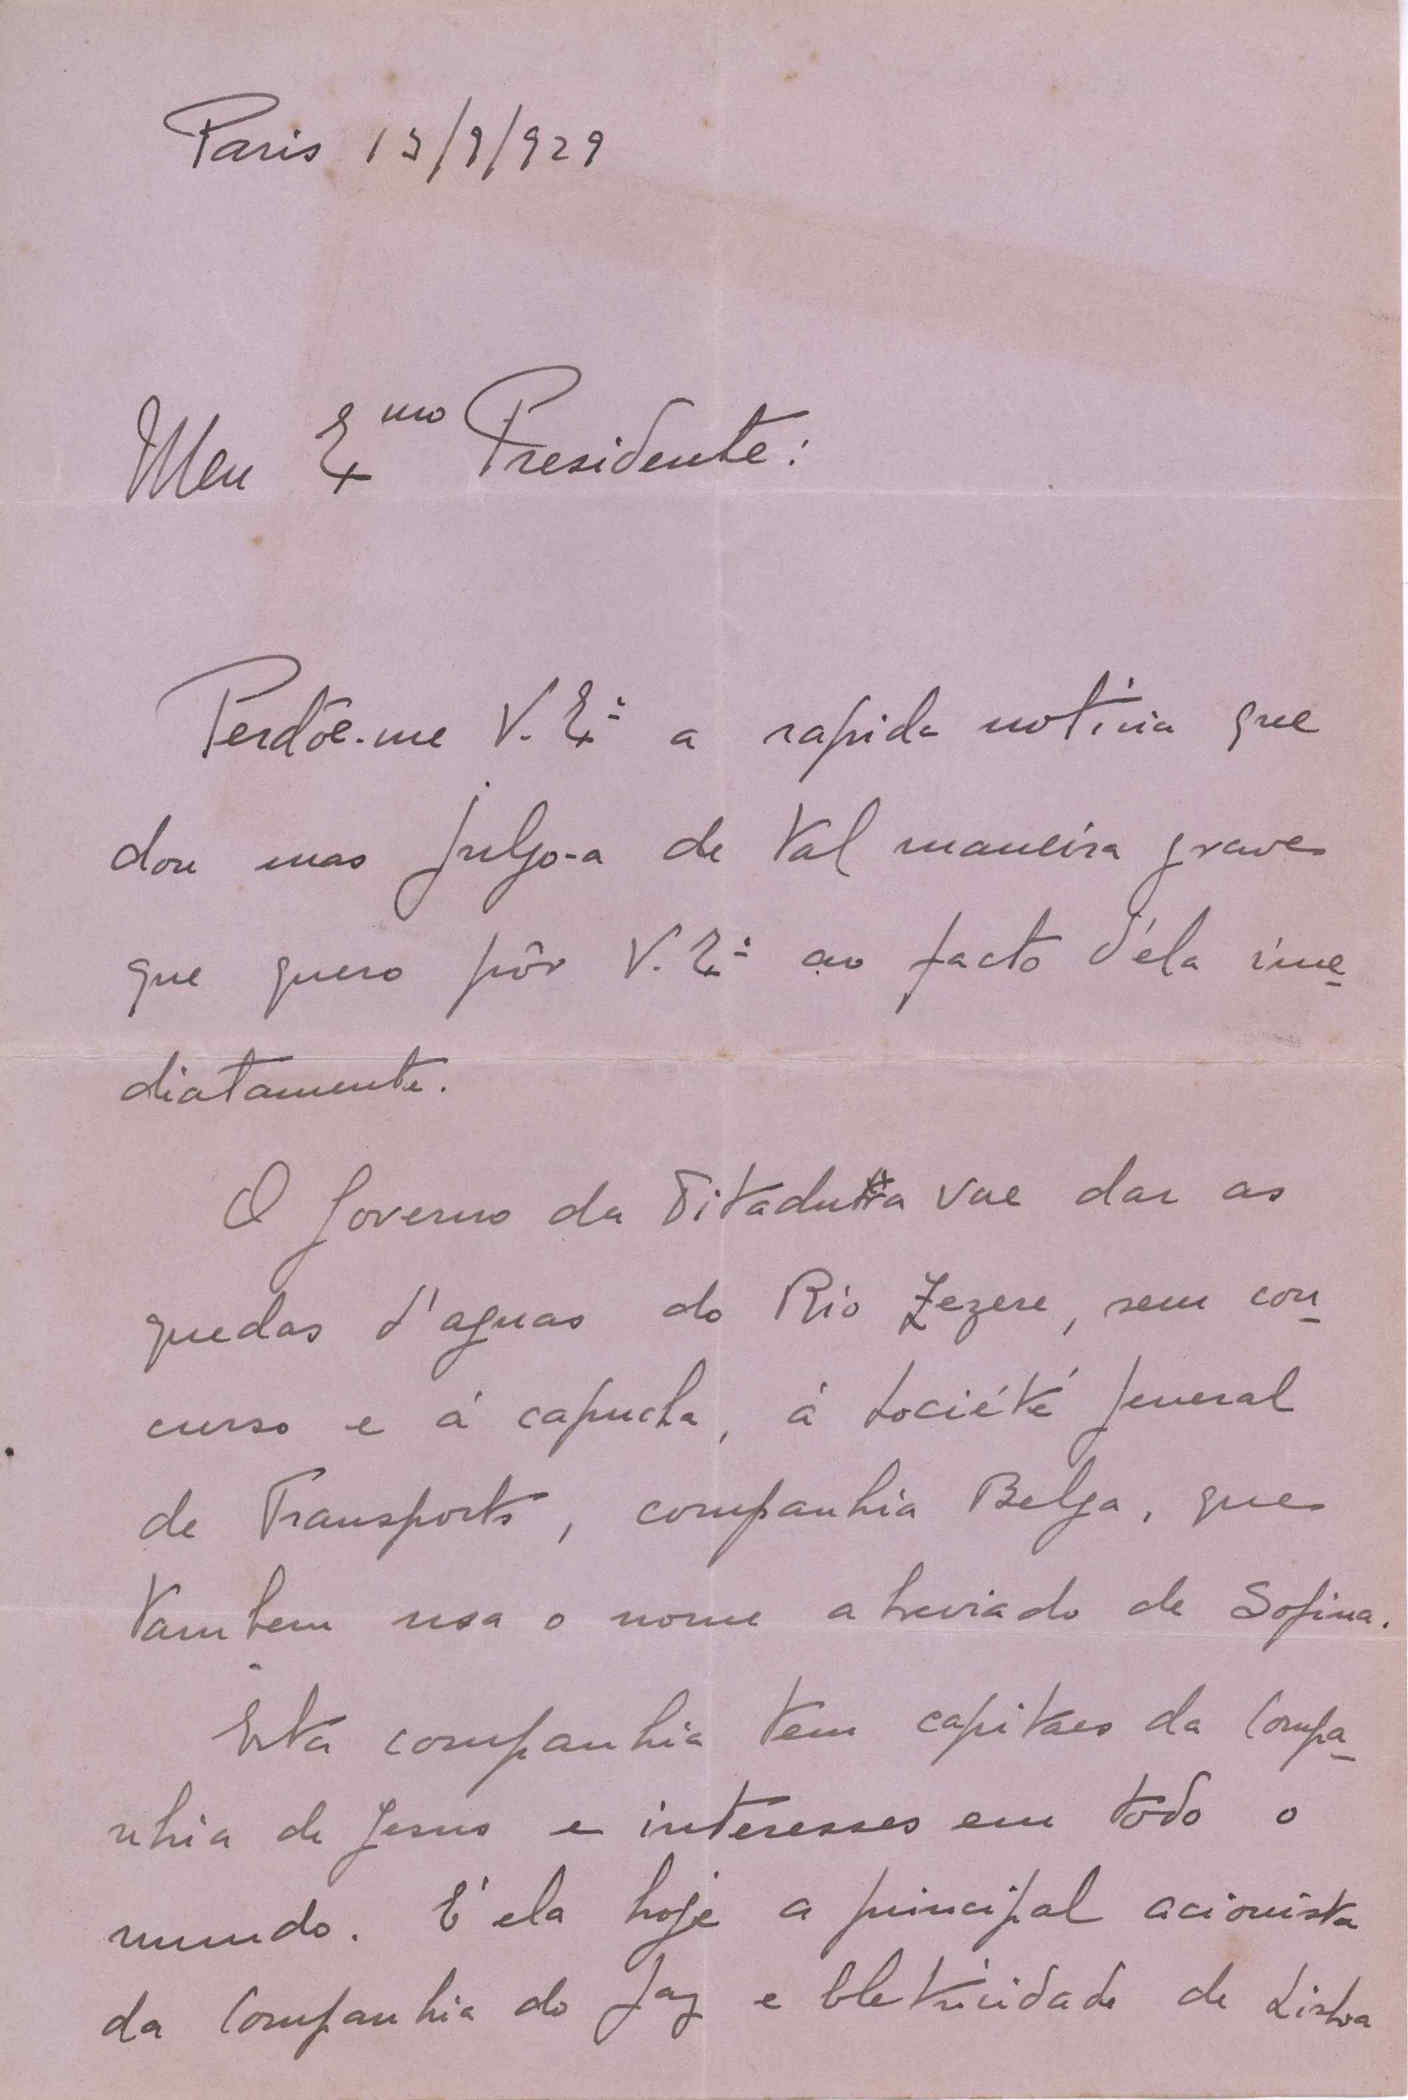 Paris 15/9/929
Meu Exmo Presidente:
Perdôe-me V. Exª a rapida noticia que
dou mas julgo-a de tal maneira grave
que quero pôr V. Exª ao facto d'éla ime-
diatamente.
O Governo da Ditadura vae dar as
quedas d'aguas do Rio Zezere, sem con-
curso e á capucha, á Société General
de Transports, companhia Belga, que
tambem usa o nome abreviado de Sofina.
Esta companhia tem capitaes da Compa-
nhia de Jesus e interesses em todo o
mundo. E' ela hoje a principal acionista
da Companhia do Gaz e Eletricidade de Lisboa